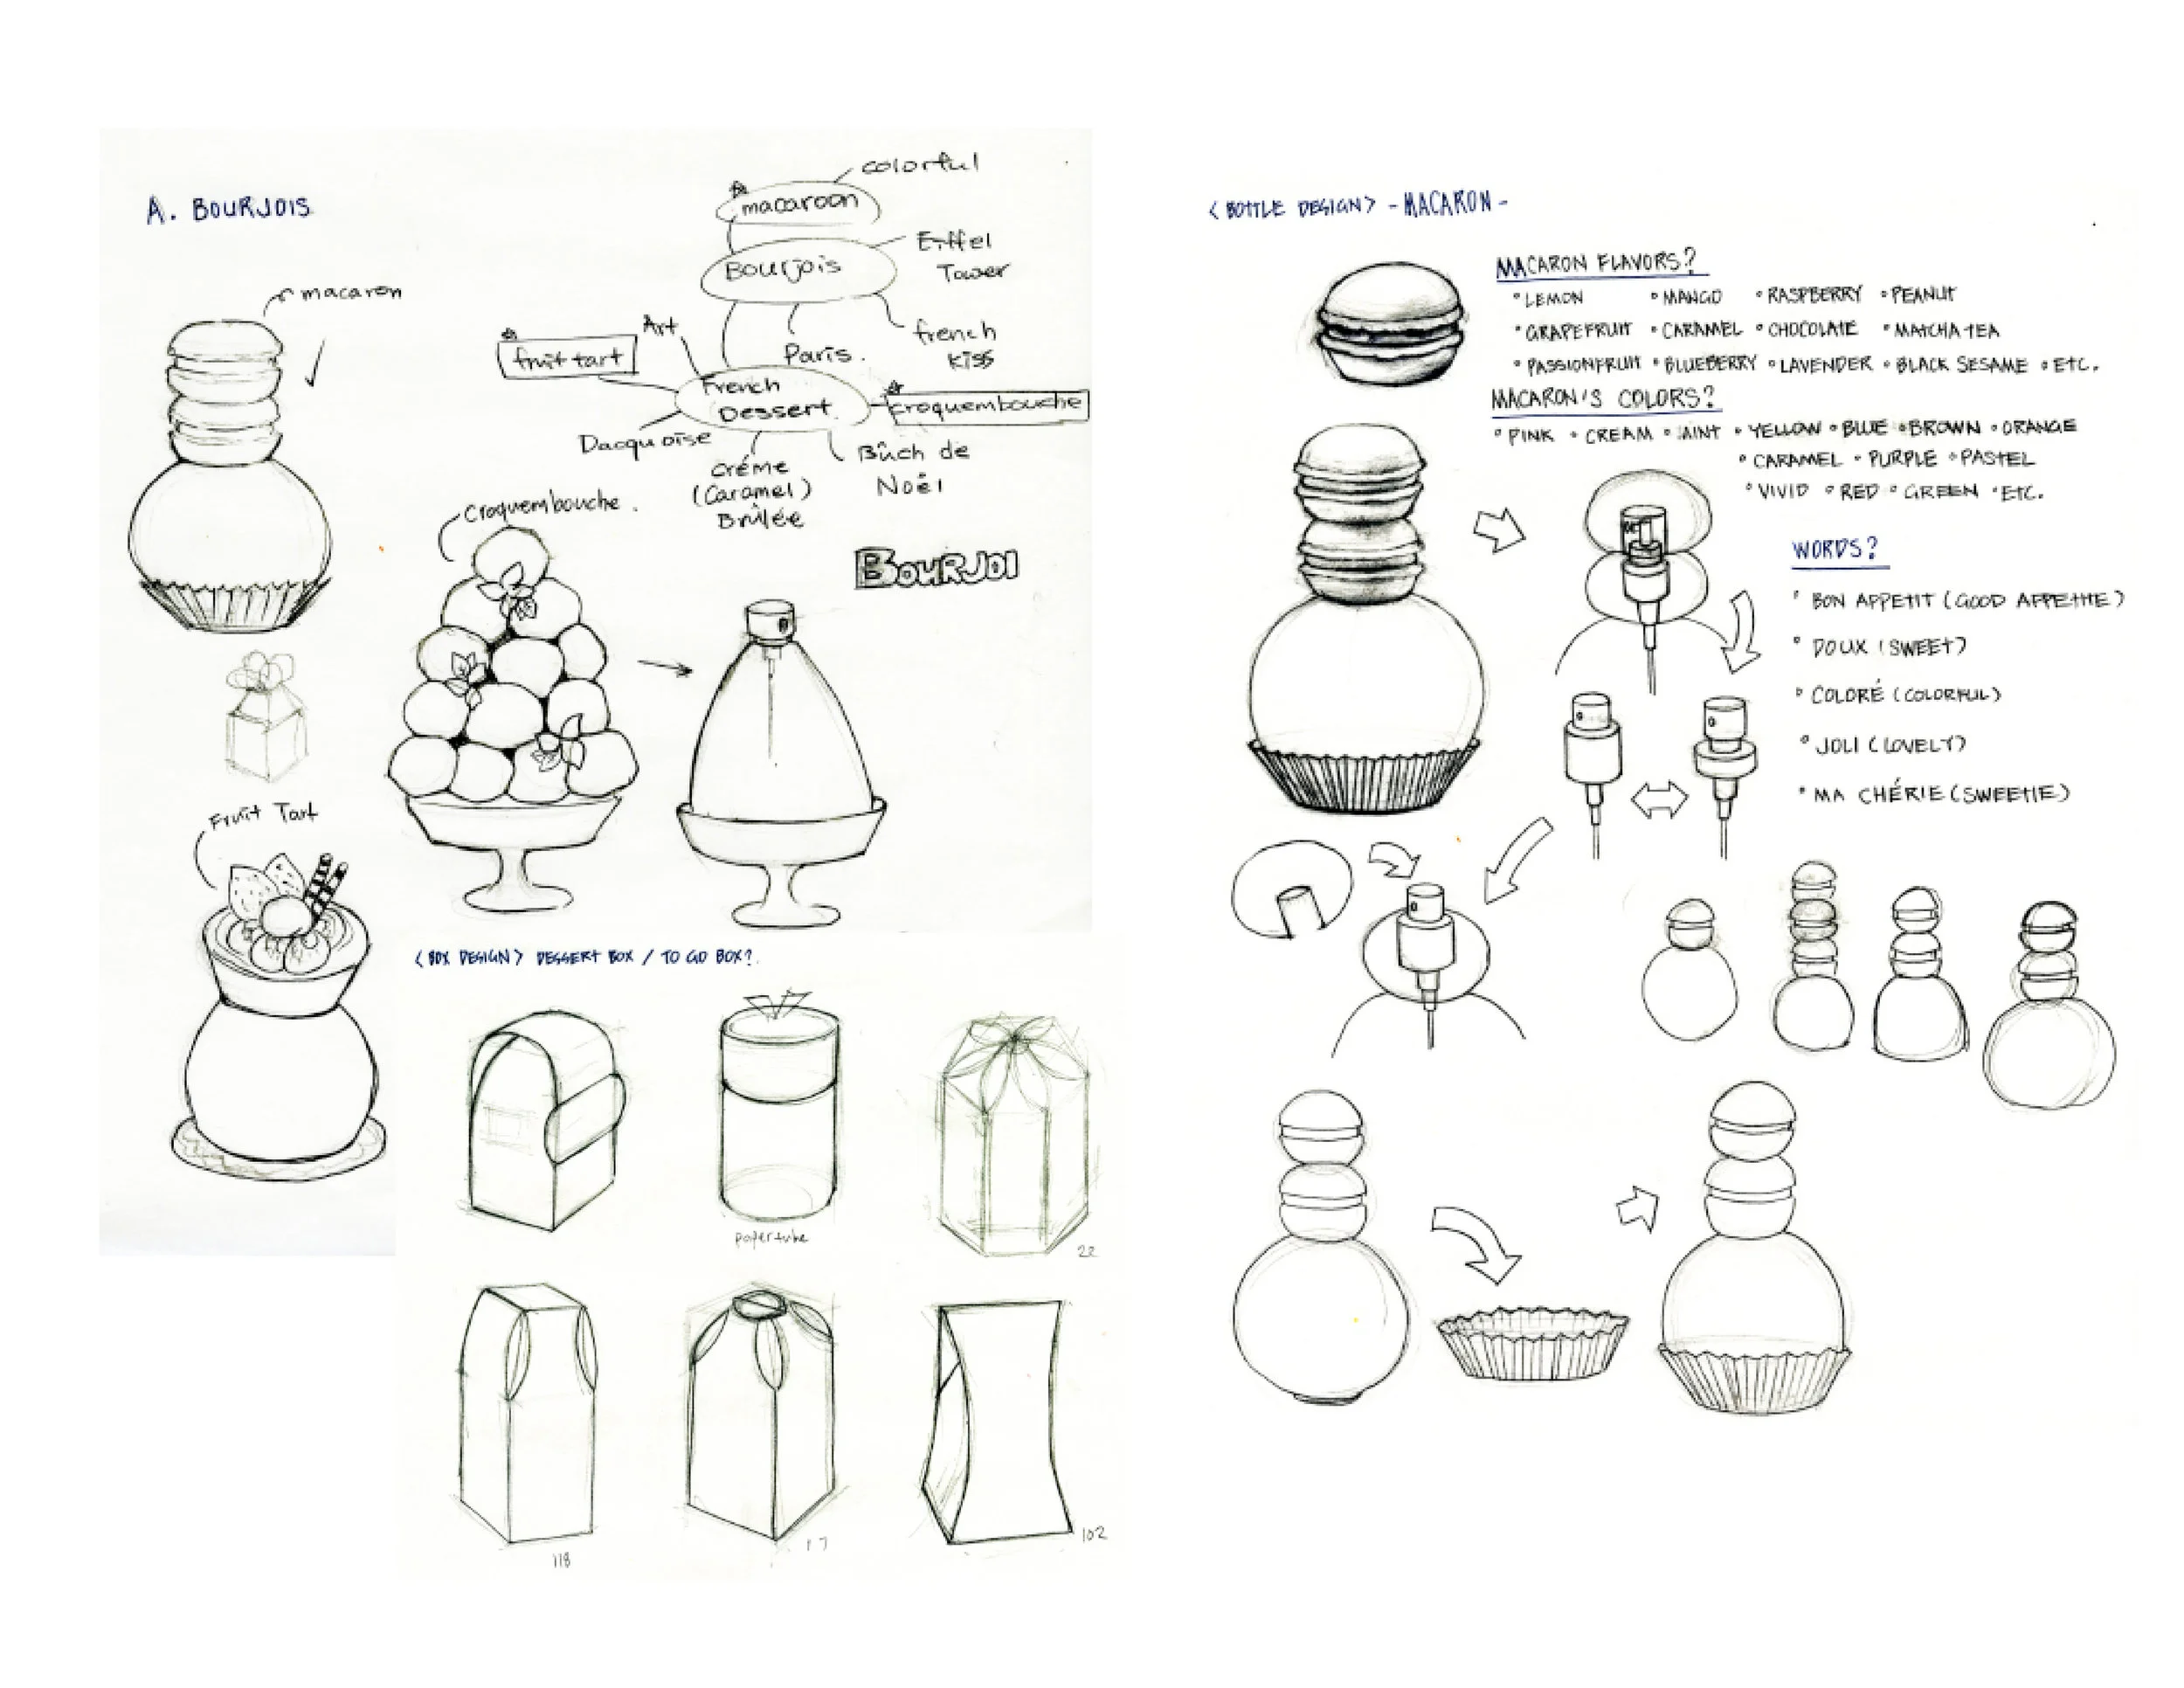 A. BOURJOIS
macaron
colorful
macaroon
Eiffel
Tower
Bourjois
french
Kiss
Art
Paris.
fruit tart
French
Dessert
croquembouche
Dacquoise
créme
(Caramel)
Brûlée
Bûch de
Noël
Croquembouche.
BOURJOI
Fruit Tart
<BOX DESIGN> DESSERT BOX / TO GO BOX?
papertube
22
118
17
102
<BOTTLE DESIGN> -MACARON-
MACARON FLAVORS?
• LEMON • MANGO • RASPBERRY • PEANUT
• GRAPEFRUIT • CARAMEL • CHOCOLATE • MATCHA TEA
• PASSIONFRUIT • BLUEBERRY • LAVENDER • BLACK SESAME • ETC.
MACARON'S COLORS?
• PINK • CREAM • MINT • YELLOW • BLUE • BROWN • ORANGE
• CARAMEL • PURPLE • PASTEL
• VIVID • RED • GREEN • ETC.
WORDS?
• BON APPETIT (GOOD APPETITE)
• DOUX (SWEET)
• COLORÉ (COLORFUL)
• JOLI (LOVELY)
• MA CHÉRIE (SWEETIE)